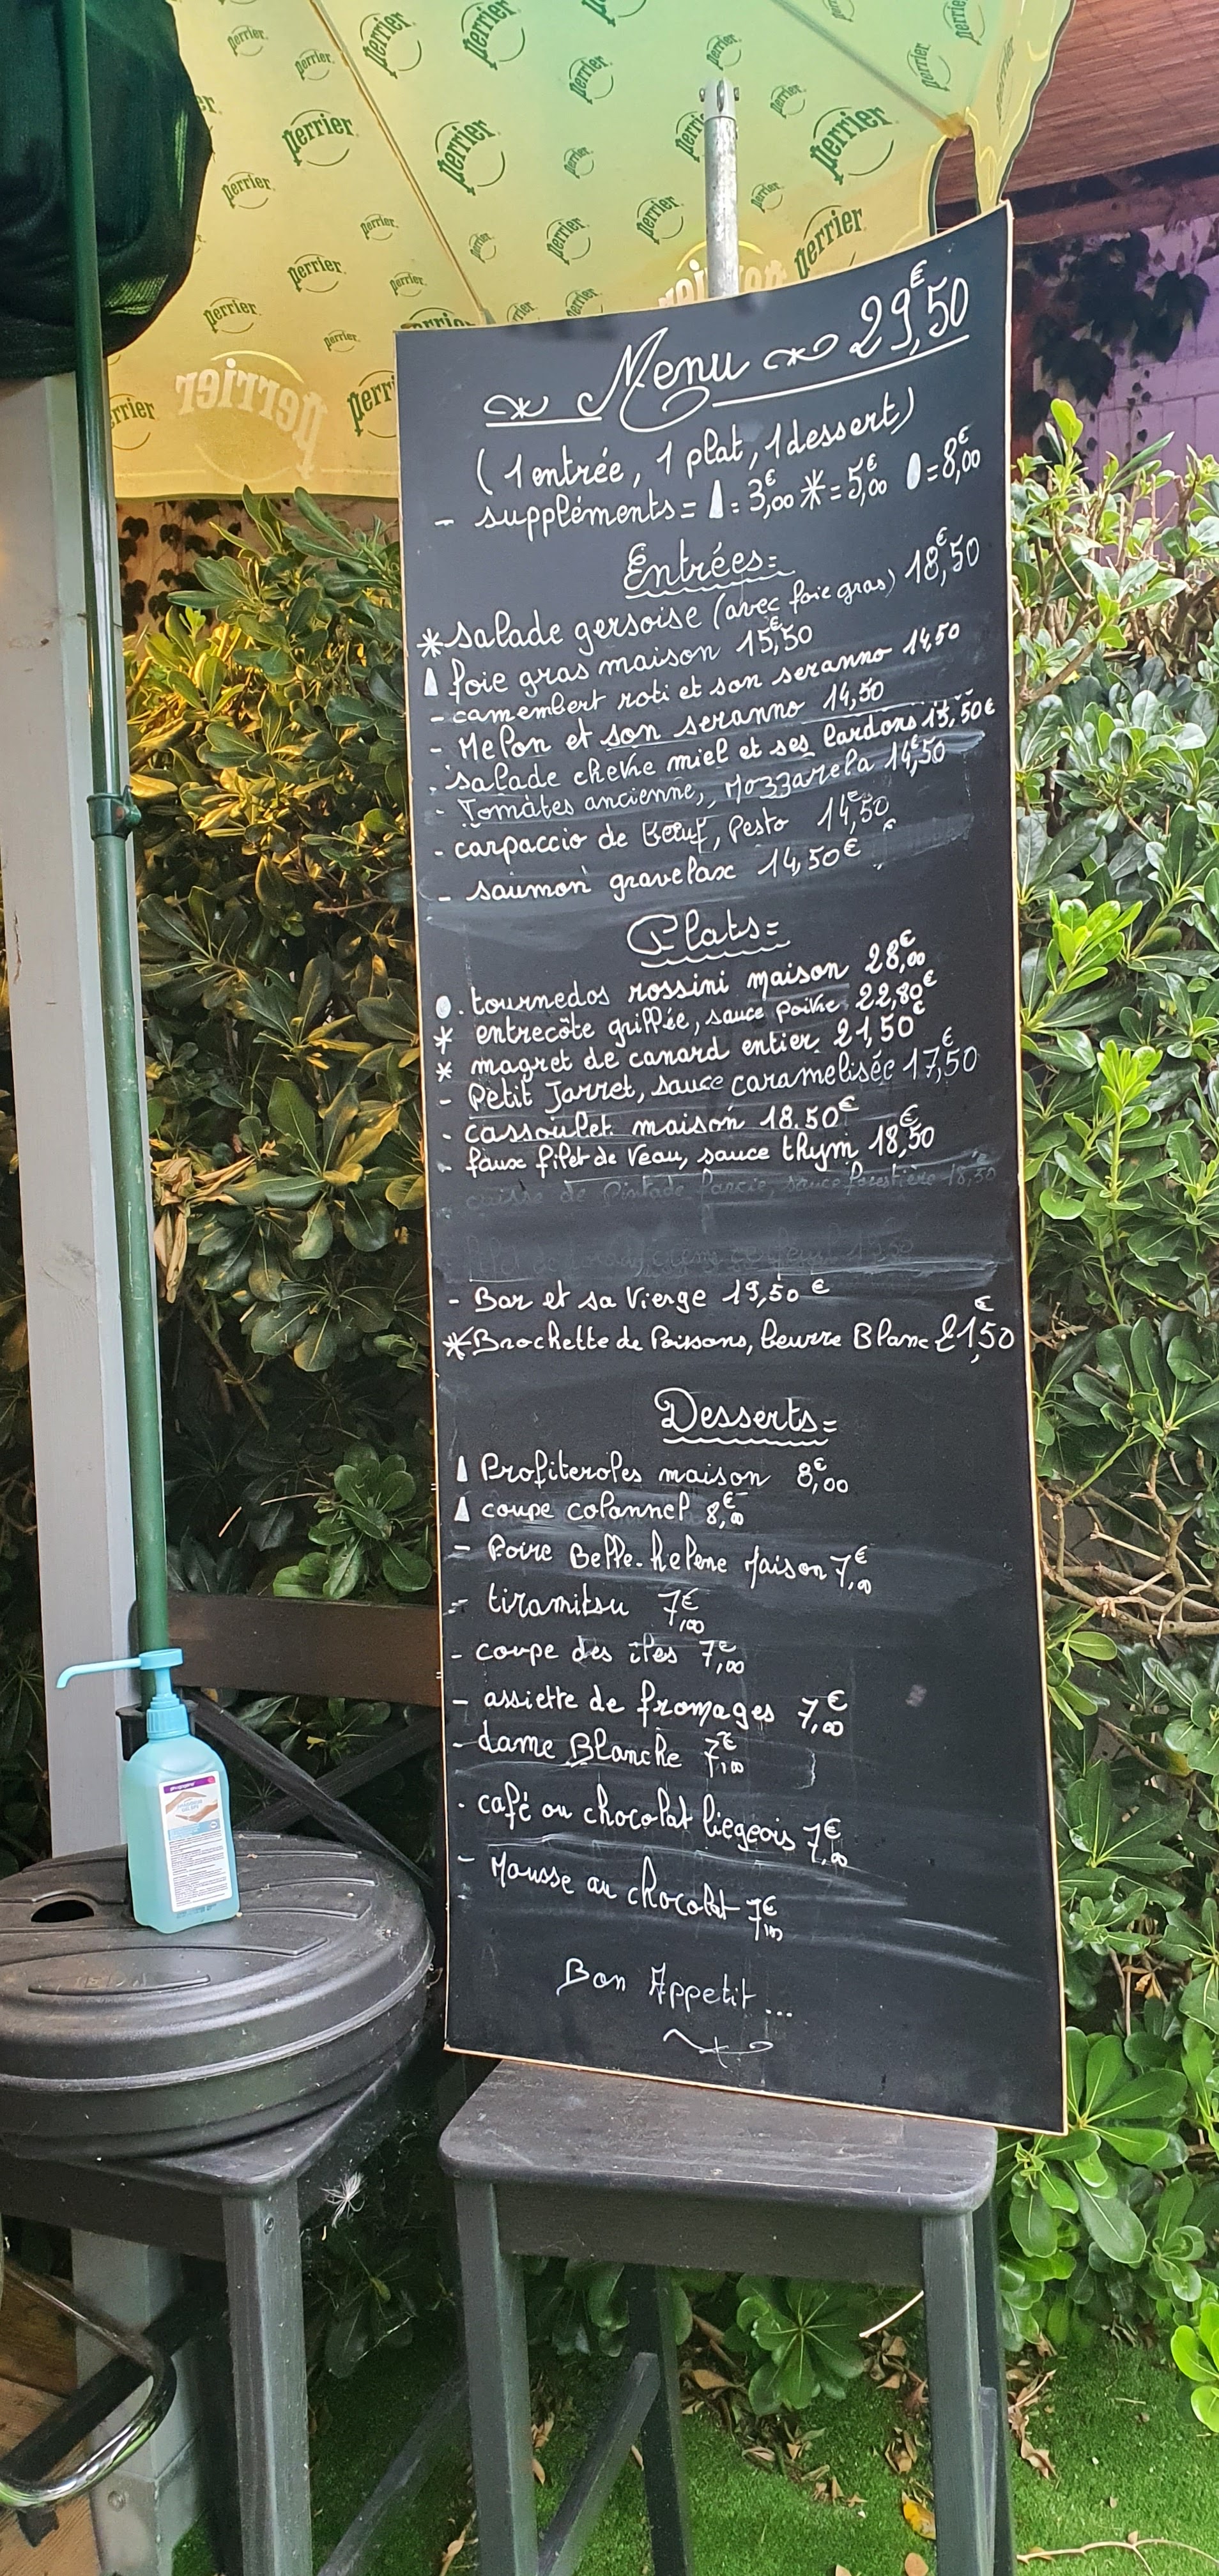 perrier
Menu 29,50€
(1 entrée, 1 plat, 1 dessert)
- suppléments = = 3,00€ * = 5,00€ = 8,00€
Entrées =
* salade gersoise (avec foie gras) 18,50€
foie gras maison 15,50€
- camembert roti et son seranno 14,50
- Melon et son seranno 14,50
. salade chevre miel et ses lardons 15,50€
- Tomates ancienne, Mozzarela 14,50€
- carpaccio de Bœuf, Pesto 14,50€
- saumon gravelax 14,50€
Plats =
. tournedos rossini maison 28,00€
* entrecôte grillée, sauce poivre 22,80€
* magret de canard entier 21,50€
- Petit Jarret, sauce caramelisée 17,50€
- cassoulet maison 18.50€
- faux filet de Veau, sauce thym 18,50€
- cuisse de Pintade farcie, sauce forestière 18,50
- Bar et sa Vierge 19,50€
* Brochette de Poissons, beurre Blanc 21,50€
Desserts =
Profiteroles maison 8,00€
coupe colonnel 8,00€
- Poire Belle-helene Maison 7,00€
- tiramitsu 7,00€
- coupe des îles 7,00€
- assiette de fromages 7,00€
- dame Blanche 7,00€
. café ou chocolat liegeois 7,00€
- Mousse au chocolat 7,00€
Bon Appetit...